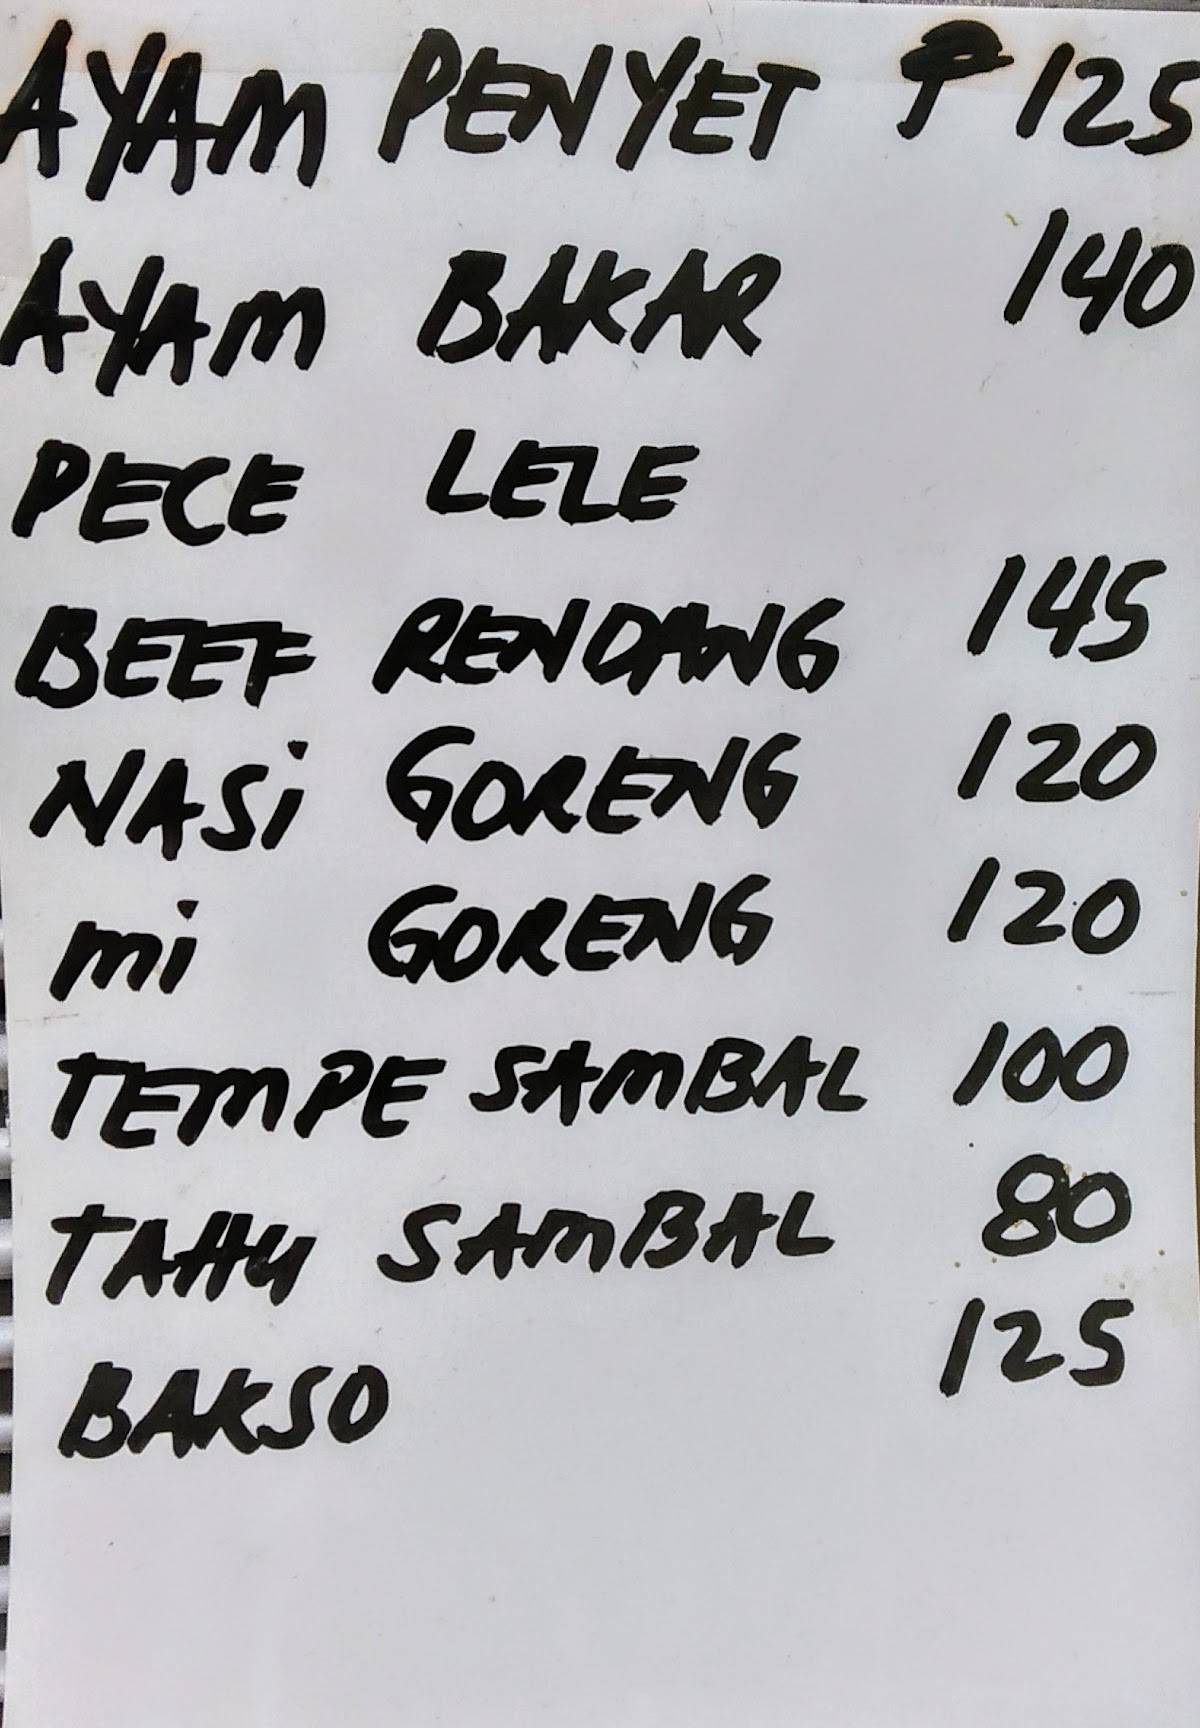 AYAM PENYET ₱ 125
AYAM BAKAR 140
PECE LELE
BEEF RENDANG 145
NASi GORENG 120
mi GORENG 120
TEMPE SAMBAL 100
TAHU SAMBAL 80
BAKSO 125